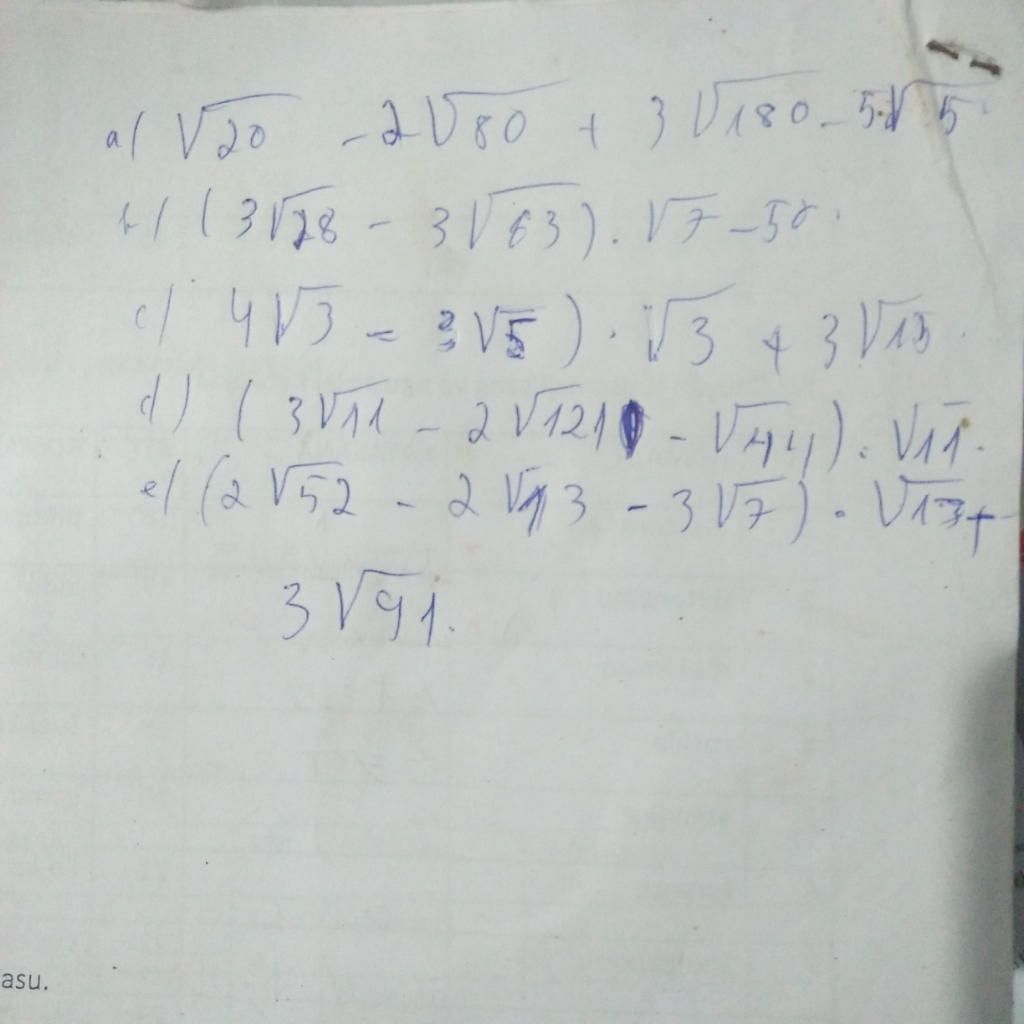 a/ √20 - 2√80 + 3√180 - 5√5
b/ (3√28 - 3√63). √7 - 58.
c/ 4√3 - 3√5). √3 + 3√15.
d) (3√11 - 2√121 - √44). √11.
e/ (2√52 - 2√13 - 3√7). √13 +
3√91.
asu.